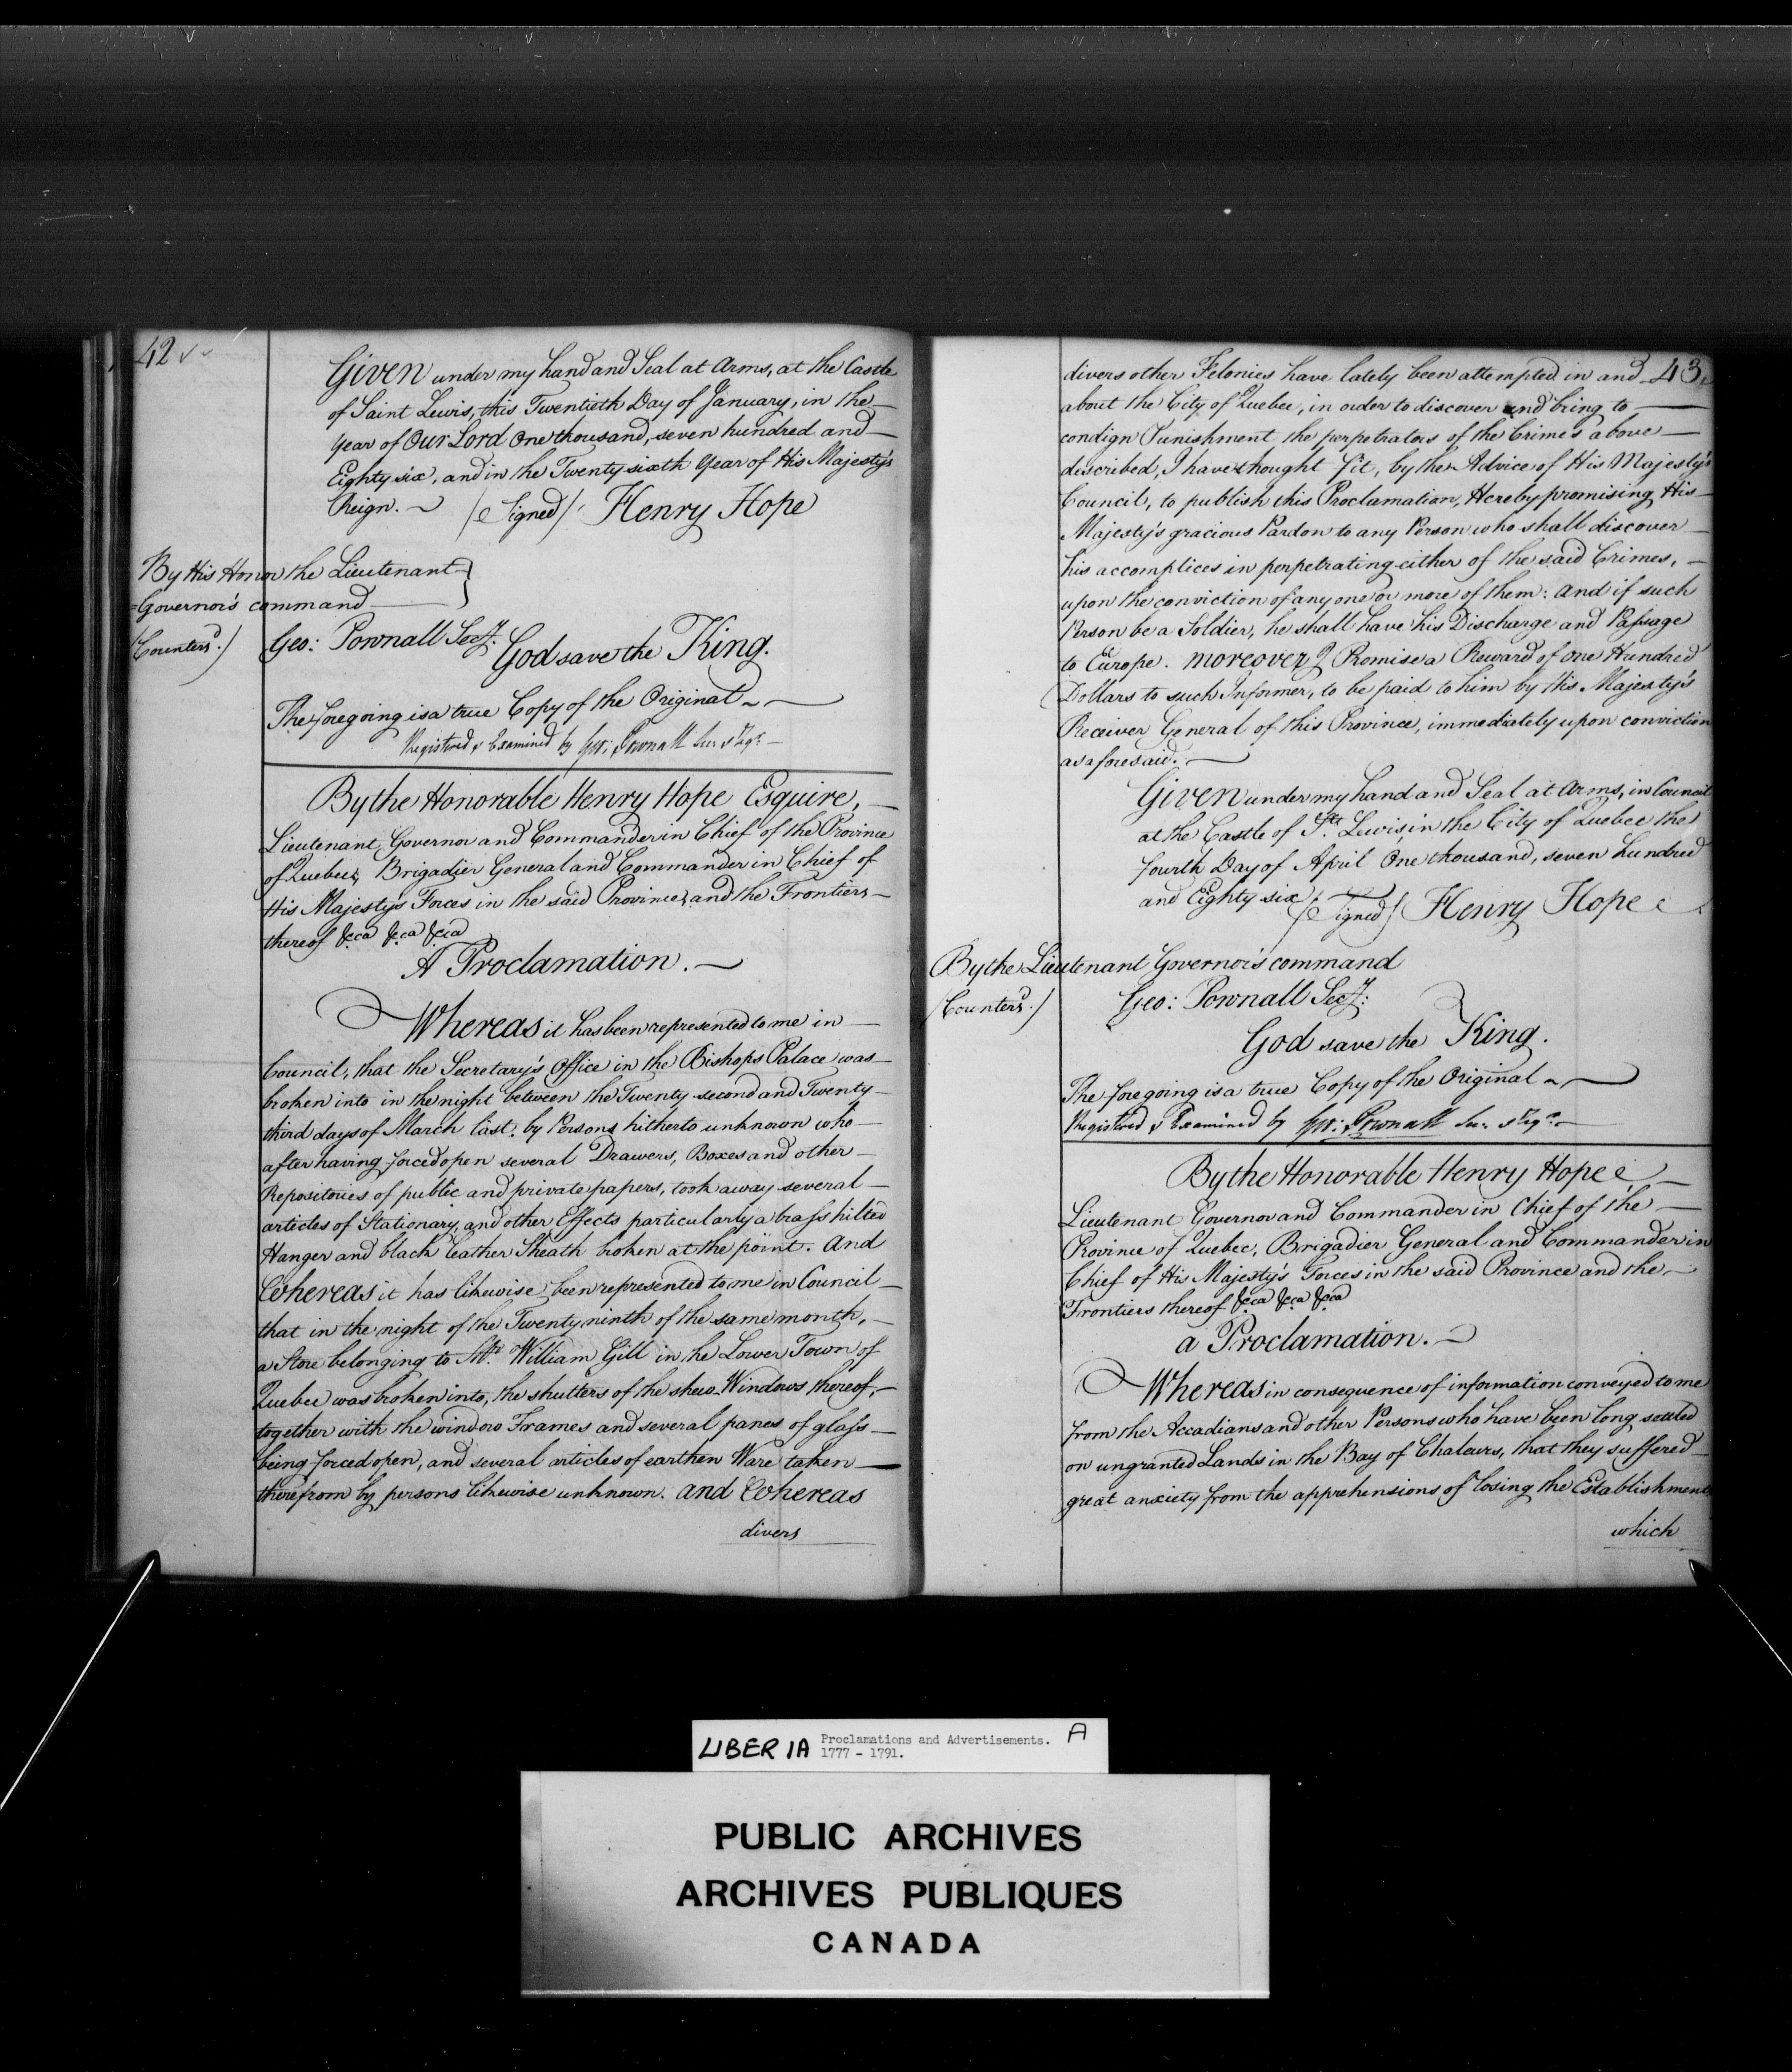 42
Given under my hand and Seal at Arms, at the Castle
of Saint Lewis, this Twentieth Day of January, in the
year of Our Lord One thousand, seven hundred and
Eighty six, and in the Twenty sixth Year of His Majesty's
Reign. (Signed) Henry Hope
By His Honor the Lieutenant
Governor's command
(Counters'd.) Geo: Pownall Secy:
God save the King.
The foregoing is a true Copy of the Original
Registred & Examined by Geo: Pownall
By the Honorable Henry Hope Esquire,
Lieutenant Governor and Commander in Chief of the Province
of Quebec, Brigadier General and Commander in Chief of
His Majesty's Forces in the said Province, and the Frontiers
thereof &ca &ca &ca
A Proclamation.
Whereas it has been represented to me in
Council, that the Secretary's Office in the Bishops Palace was
broken into in the night between the Twenty second and Twenty
third days of March last, by Persons hitherto unknown who
after having forced open several Drawers, Boxes and other
Repositories of public and private papers, took away several
articles of Stationary, and other Effects particularly a brass hilted
Hanger and black Leather Sheath broken at the point. And
Whereas it has likewise been represented to me in Council
that in the night of the Twenty ninth of the same month,
a Store belonging to Mr. William Gill in the Lower Town of
Quebec was broken into, the shutters of the shew Windows thereof,
together with the window Frames and several panes of glass
being forced open, and several articles of earthen Ware taken
therefrom by persons likewise unknown. And Whereas
divers
43
divers other Felonies have lately been attempted in and
about the City of Quebec, in order to discover and bring to
condign Punishment the perpetrators of the Crimes above
described, I have thought fit, by the Advice of His Majesty's
Council, to publish this Proclamation, Hereby promising His
Majesty's gracious Pardon to any Person who shall discover
his accomplices in perpetrating either of the said Crimes,
upon the conviction of any one or more of them: And if such
Person be a Soldier, he shall have his Discharge and Passage
to Europe. Moreover I Promise a Reward of One Hundred
Dollars to such Informer, to be paid to him by His Majesty's
Receiver General of this Province, immediately upon conviction
as aforesaid.
Given under my hand and Seal at Arms, in Council
at the Castle of St. Lewis, in the City of Quebec the
fourth Day of April One thousand, seven hundred
and Eighty six (Signed) Henry Hope
By the Lieutenant Governor's command
(Counters'd.) Geo: Pownall Secy:
God save the King.
The foregoing is a true Copy of the Original
Registred & Examined by Geo: Pownall
By the Honorable Henry Hope
Lieutenant Governor and Commander in Chief of the
Province of Quebec, Brigadier General and Commander in
Chief of His Majesty's Forces in the said Province and the
Frontiers thereof &ca &ca &ca
a Proclamation.
Whereas in consequence of information conveyed to me
from the Accadians and other Persons who have been long settled
on ungranted Lands in the Bay of Chaleurs, that they suffered
great anxiety from the apprehensions of losing the Establishments
which
LIBER 1A Proclamations and Advertisements. A
1777 - 1791.
PUBLIC ARCHIVES
ARCHIVES PUBLIQUES
CANADA